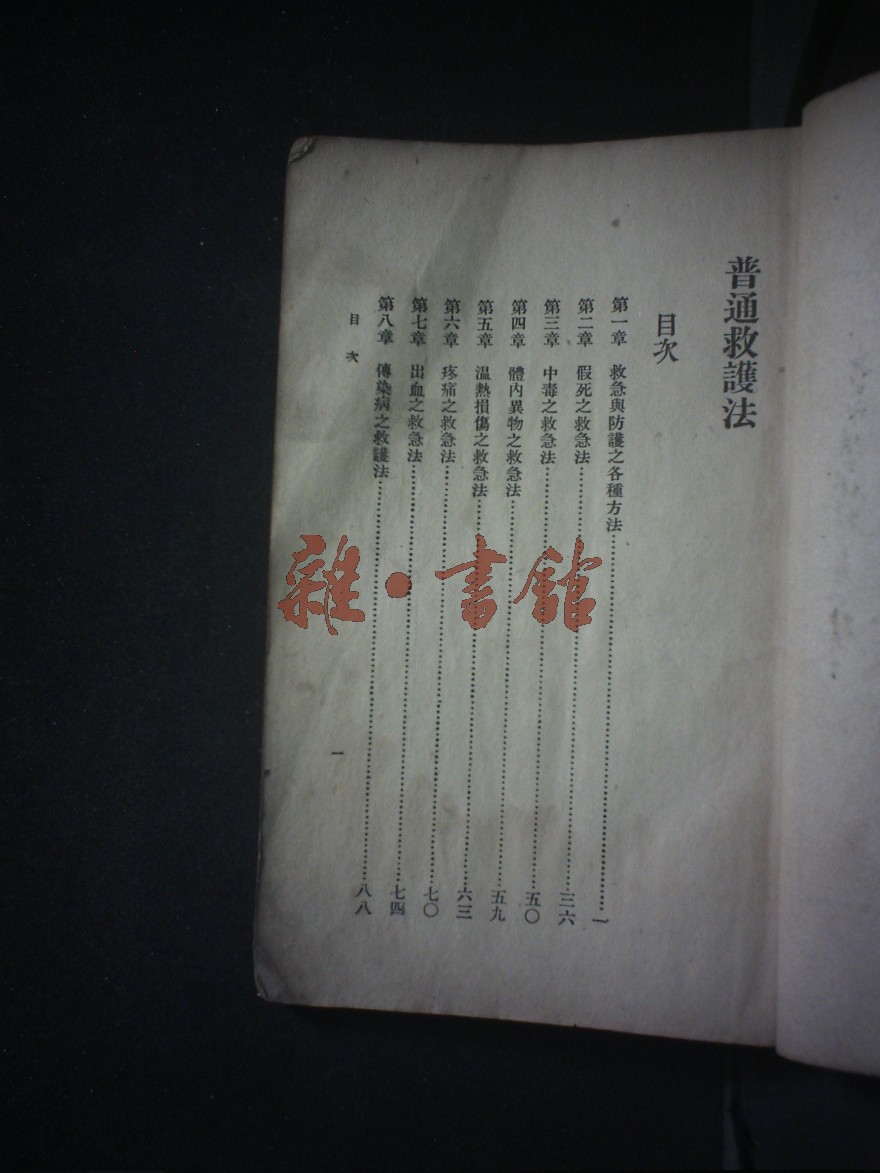 普通救護法
目次
第一章 救急與防護之各種方法……一
第二章 假死之救急法……三六
第三章 中毒之救急法……五〇
第四章 體內異物之救急法……五九
第五章 溫熱損傷之救急法……六三
第六章 疼痛之救急法……七〇
第七章 出血之救急法……七四
第八章 傳染病之救護法……八八
目次
一
雜·書館